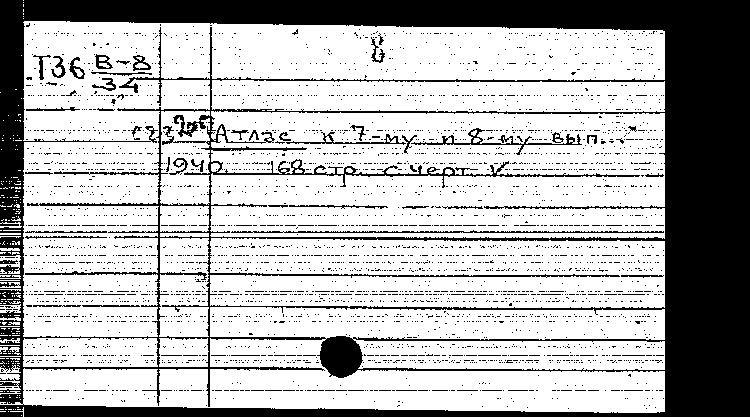 8
Т36 В-8
34
Атлас к 7-му и 8-му вып...
1940. 168 стр. с черт. V